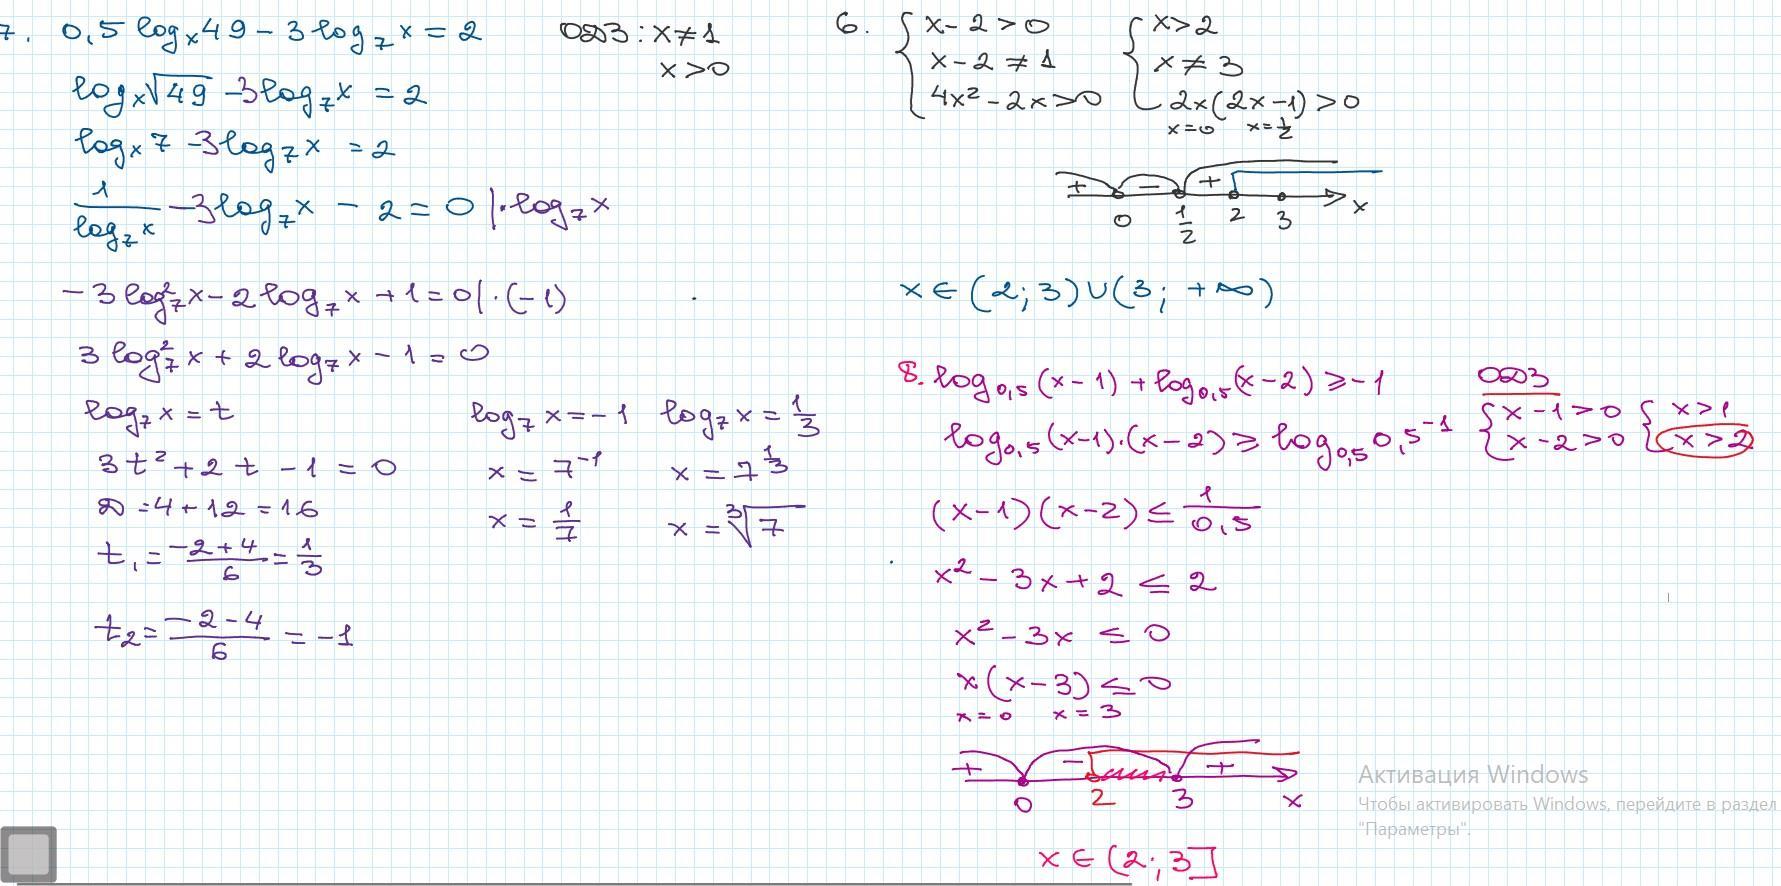 7. 0,5 logₓ49 - 3log₇x = 2
ОДЗ: x ≠ 1
x > 0
logₓ√49 - 3log₇x = 2
logₓ7 - 3log₇x = 2
1/log₇x - 3log₇x - 2 = 0 |·log₇x
-3log₇²x - 2log₇x + 1 = 0 |·(-1)
3log₇²x + 2log₇x - 1 = 0
log₇x = t
3t² + 2t - 1 = 0
D = 4 + 12 = 16
t₁ = (-2+4)/6 = 1/3
t₂ = (-2-4)/6 = -1
log₇x = -1
x = 7⁻¹
x = 1/7
log₇x = 1/3
x = 7^(1/3)
x = ∛7
6. { x - 2 > 0
x - 2 ≠ 1
4x² - 2x > 0
{ x > 2
x ≠ 3
2x(2x-1) > 0
x=0 x=1/2
+ - +
0 1/2 2 3 x
x ∈ (2; 3) ∪ (3; +∞)
8. log₀,₅(x-1) + log₀,₅(x-2) ≥ -1
log₀,₅(x-1)·(x-2) ≥ log₀,₅0,5⁻¹
ОДЗ
{ x - 1 > 0
x - 2 > 0
{ x > 1
x > 2
(x-1)(x-2) ≤ 1/0,5
x² - 3x + 2 ≤ 2
x² - 3x ≤ 0
x(x-3) ≤ 0
x=0 x=3
+ - +
0 2 3 x
x ∈ (2; 3]
Активация Windows
Чтобы активировать Windows, перейдите в раздел
"Параметры".